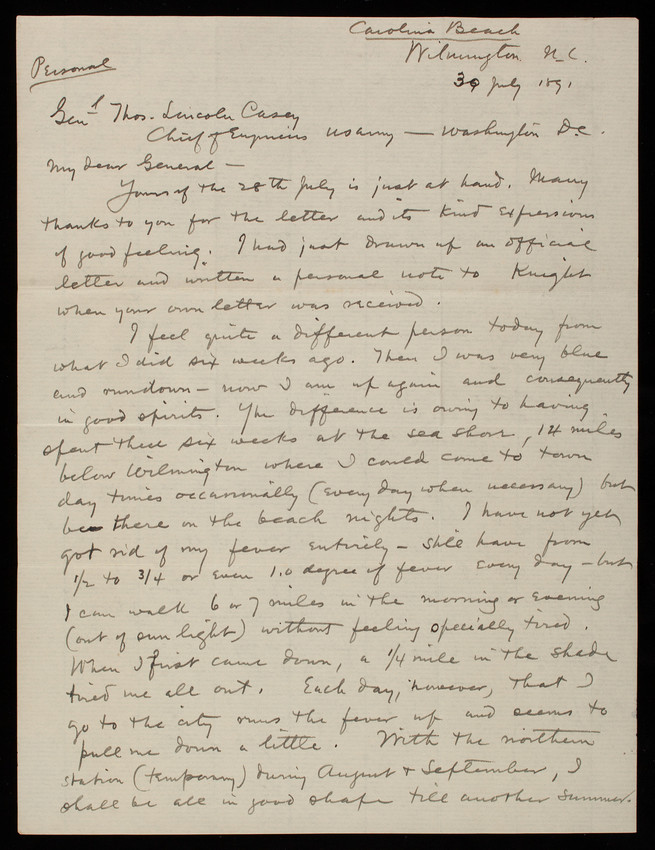 Carolina Beach
Wilmington N.C.
30 July 1891
Personal
Genl Thos. Lincoln Casey
Chief of Engineers US Army — Washington D.C.
My dear General —
Yours of the 28th July is just at hand. Many
thanks to you for the letter and its kind expressions
of good feeling. I had just drawn up an official
letter and written a personal note to Knight
when your own letter was received.
I feel quite a different person today from
what I did six weeks ago. Then I was very blue
and rundown — now I am up again and consequently
in good spirits. The difference is owing to having
spent these six weeks at the sea shore, 14 miles
below Wilmington where I could come to town
day times occasionally (every day when necessary) but
be there on the beach nights. I have not yet
got rid of my fever entirely — still have from
1/2 to 3/4 or even 1.0 degree of fever every day — but
I can walk 6 or 7 miles in the morning or evening
(out of sun light) without feeling specially tired.
When I first came down, a 1/4 mile in the shade
tired me all out. Each day, however, that I
go to the city runs the fever up and seems to
pull me down a little. With the northern
station (temporary) during August & September, I
shall be all in good shape till another summer.